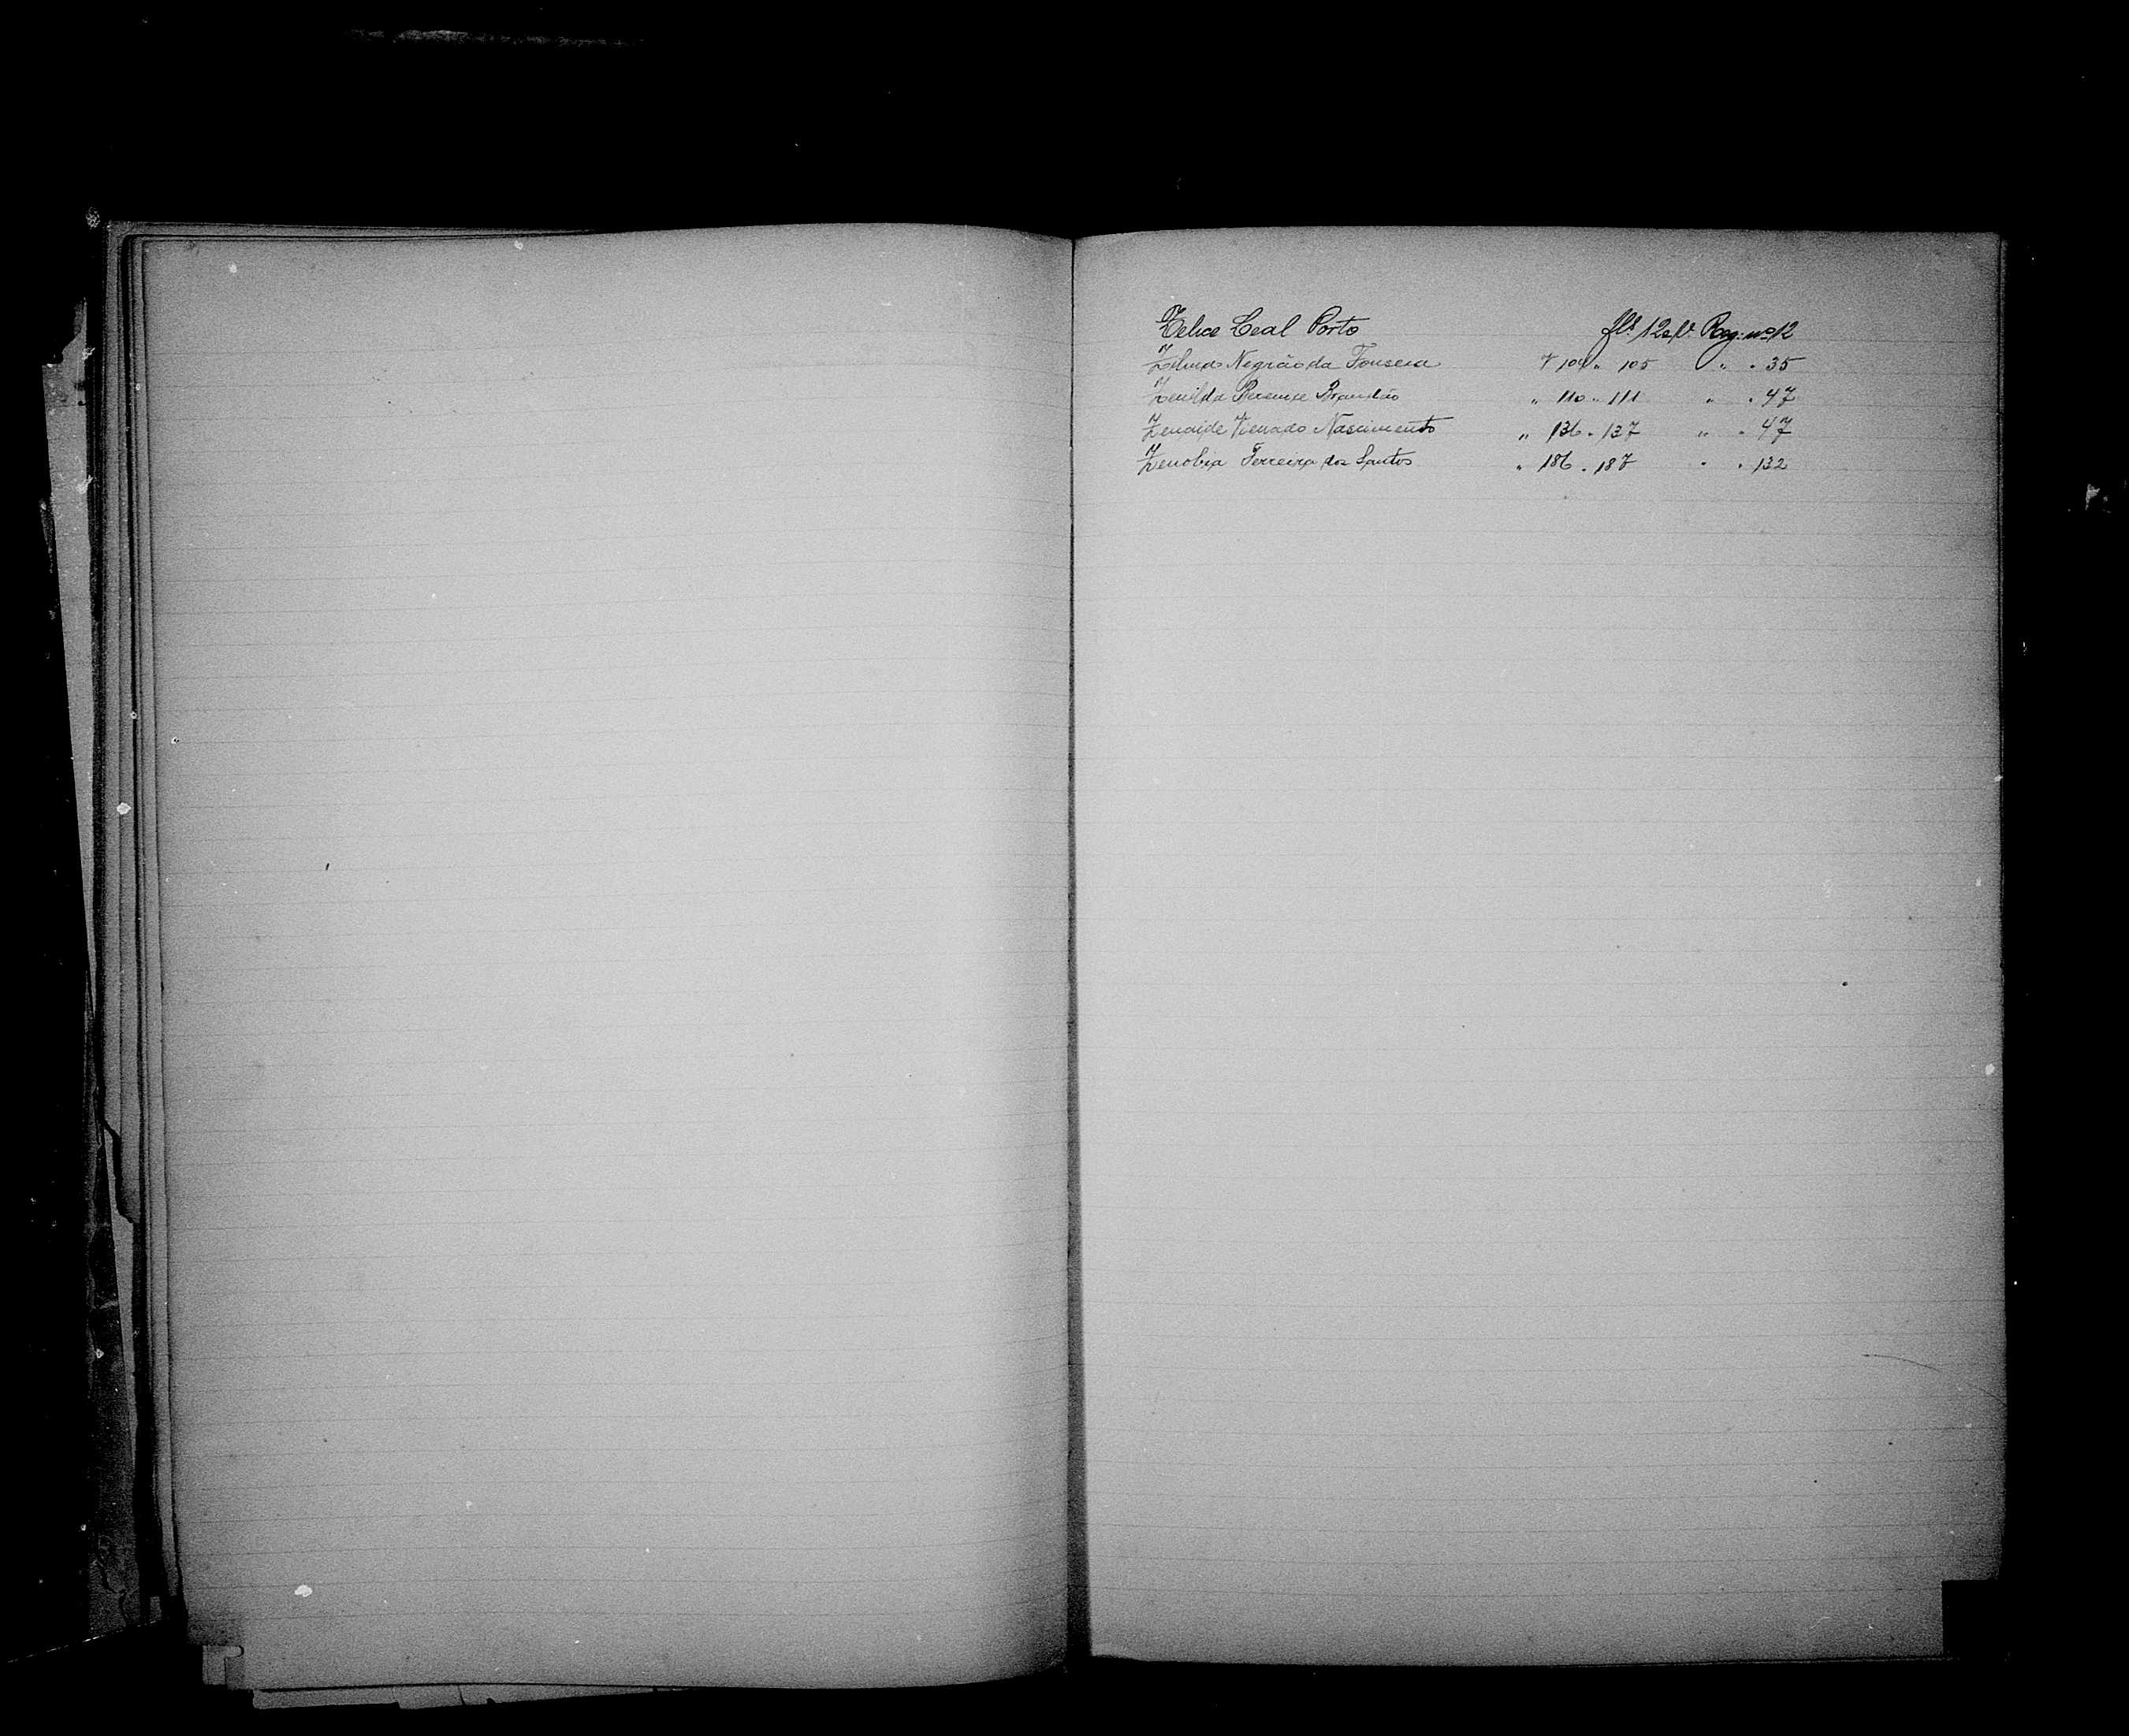 Zelice Leal Porto fls 12 e v. Reg. nº 12
Zelinda Negrão da Fonseca " 104 " 105 " " 35
Zenilda Berenice Brandão " 110 " 111 " " 47
Zenaide Vieira do Nascimento " 136 " 137 " " 47
Zenobia Ferreira dos Santos " 186 " 187 " " 132